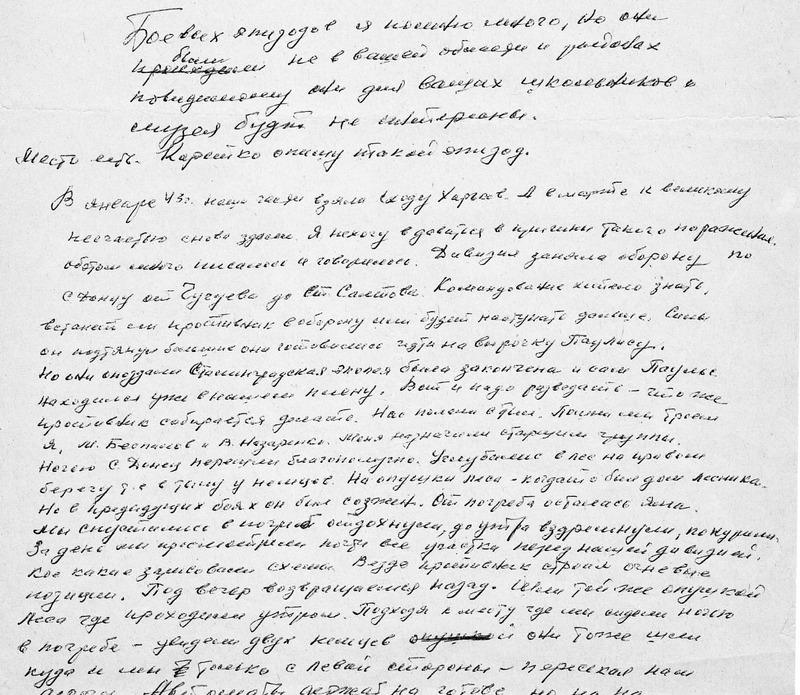 Боевых эпизодов я помню много, но они
были не в вашей области и районах
повидимому они для ваших школьников и
музея будут не интересны.
Место есть. Коротко опишу такой эпизод.
В январе 43г. наши части взяли сходу Харьков. А в марте к великому
несчастью снова здали. Я не хочу вдаваться в причины такого поражения.
обэтом много писалось и говорилось. Дивизия заняла оборону по
с Донцу от Чугуева до Ст. Салтова. Командование хотело знать,
встанет ли противник в оборону или будет наступать дальше. Силы
он подтянул большие они готовились идти на выручку Паулюсу.
Но они опоздали Сталинградская эпопея была закончена и сам Паулюс
находился уже в нашем плену. Вот и надо разведать - что же
противник собирается делать. Нас послали в тыл. Пошли мы троем
Я, М. Беспалов и В. Назаренко. Меня назначили старшим группы.
Ночью С Донец перешли благополучно. Углубились в лес на правом
берегу т.е в тылу у немцев. На опушки леса - когдато был дом лесника.
Но в предидущих боях он был созжен. От погреба осталась яма.
Мы спустились в погреб отдохнули, до утра вздремнули, покурили.
За день мы просмотрели почти все участки перед нашей дивизией.
Кое какие зарисовали схемы. Везде противник строил огневые
позиции. Под вечер возвращаемся назад. Шли той же опушкой
леса где проходили утром. Подходя к месту где мы сидели ночью
в погребе - увидели двух немцев они тоже шли
куда и мы только с левой стороны - пересекая нам
Автоматы держа на готове, но